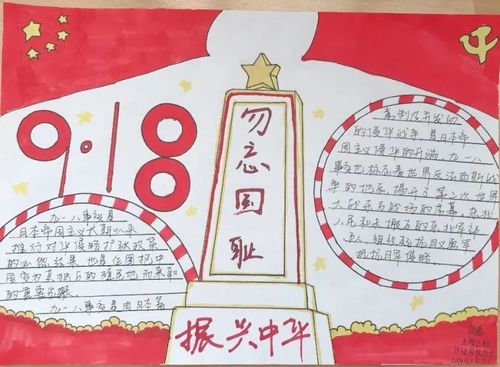 9.18
勿忘国耻
振兴中华
九一八事变是
日本帝国主义长期以来
推行对华侵略扩张政策
的必然结果,也是企图把中
国变为其独占的殖民地而采取
的重要步骤。
九一八事变是由日本蓄
意制造并发动
的侵华战争,是日本帝
国主义侵华的开端。九一八
事变也标志着世界反法西斯战
争的起点,揭开了第二次世界
大战东方战场的序幕。东北
人民和未撤走的东北军
队组织抗日义勇军
抵抗日军侵略